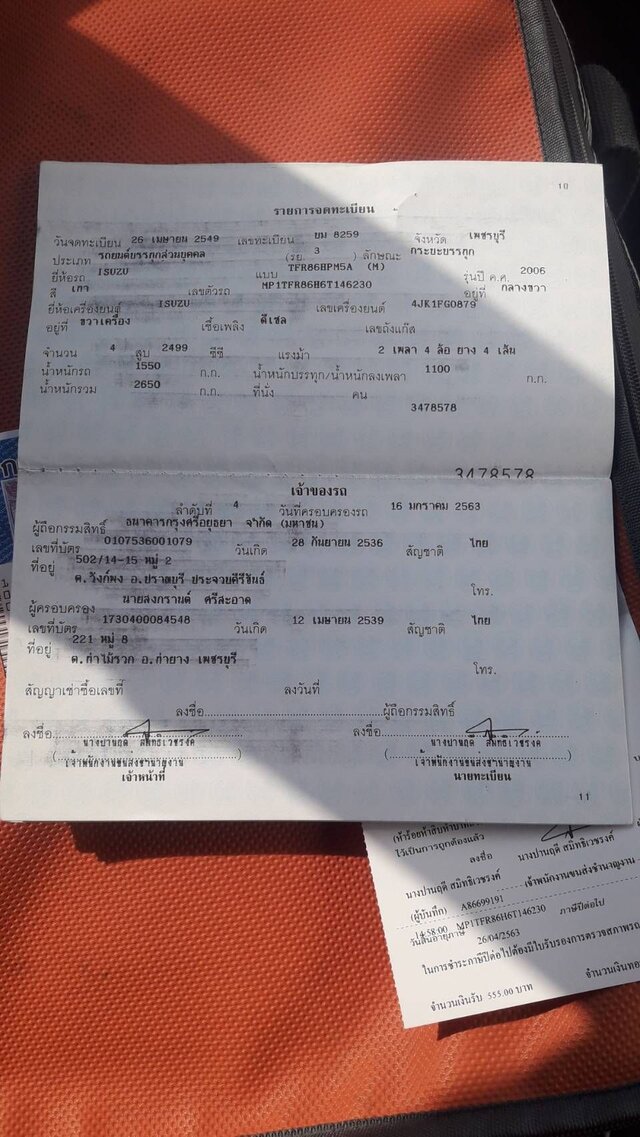 10
รายการจดทะเบียน
วันจดทะเบียน 26 เมษายน 2549 เลขทะเบียน บม 8259 จังหวัด เพชรบุรี
ประเภท รถยนต์บรรทุกส่วนบุคคล (รย. 3 ) ลักษณะ กระบะบรรทุก
ยี่ห้อรถ ISUZU แบบ TFR86HPM5A (M) รุ่นปี ค.ศ. 2006
สี เทา เลขตัวรถ MP1TFR86H6T146230 อยู่ที่ กลางขวา
ยี่ห้อเครื่องยนต์ ISUZU เลขเครื่องยนต์ 4JK1FG0879
อยู่ที่ ขวาเครื่อง เชื้อเพลิง ดีเซล เลขถังแก๊ส
จำนวน 4 สูบ 2499 ซีซี แรงม้า 2 เพลา 4 ล้อ ยาง 4 เส้น
น้ำหนักรถ 1550 ก.ก. น้ำหนักบรรทุก/น้ำหนักลงเพลา 1100 ก.ก.
น้ำหนักรวม 2650 ก.ก. ที่นั่ง คน
3478578
3478578
เจ้าของรถ
ลำดับที่ 4 วันที่ครอบครองรถ 16 มกราคม 2563
ผู้ถือกรรมสิทธิ์ ธนาคารกรุงศรีอยุธยา จำกัด (มหาชน)
เลขที่บัตร 0107536001079 วันเกิด 28 กันยายน 2536 สัญชาติ ไทย
ที่อยู่ 502/14-15 หมู่ 2
ต.วังก์พง อ.ปราณบุรี ประจวบคีรีขันธ์ โทร.
ผู้ครอบครอง นายสงกรานต์ ศรีสะอาด
เลขที่บัตร 1730400084548 วันเกิด 12 เมษายน 2539 สัญชาติ ไทย
ที่อยู่ 221 หมู่ 8
ต.ท่าไม้รวก อ.ท่ายาง เพชรบุรี โทร.
สัญญาเช่าซื้อเลขที่ ลงวันที่
ลงชื่อ ผู้ถือกรรมสิทธิ์
ลงชื่อ ลงชื่อ
นางปานฤดี สมิทธิเวชรงค์ นางปานฤดี สมิทธิเวชรงค์
เจ้าพนักงานขนส่งชำนาญงาน เจ้าพนักงานขนส่งชำนาญงาน
เจ้าหน้าที่ นายทะเบียน
11
ไว้เป็นการถูกต้องแล้ว
ลงชื่อ นางปานฤดี สมิทธิเวชรงค์
นางปานฤดี สมิทธิเวชรงค์ เจ้าพนักงานขนส่งชำนาญงาน
(ผู้บันทึก) A86699191
14:58:00 MP1TFR86H6T146230 ภาษีปีต่อไป
วันสิ้นอายุภาษี 26/04/2563
ในการชำระภาษีปีต่อไปต้องมีใบรับรองการตรวจสภาพรถ
จำนวนเงินรับ 555.00 บาท จำนวนเงินทอน